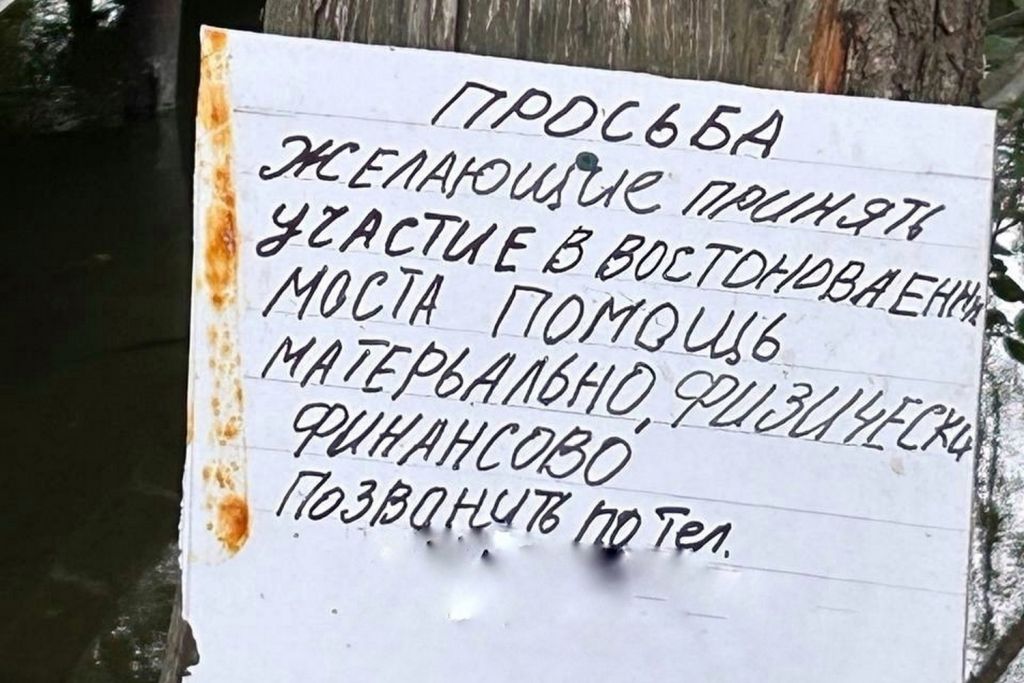 ПРОСЬБА
ЖЕЛАЮЩИЕ ПРИНЯТЬ
УЧАСТИЕ В ВОСТОНОВАЕНИИ
МОСТА ПОМОЩЬ
МАТЕРЬАЛЬНО, ФИЗИЧЕСКИ
ФИНАНСОВО
ПОЗВОНИТЬ ПО Тел.